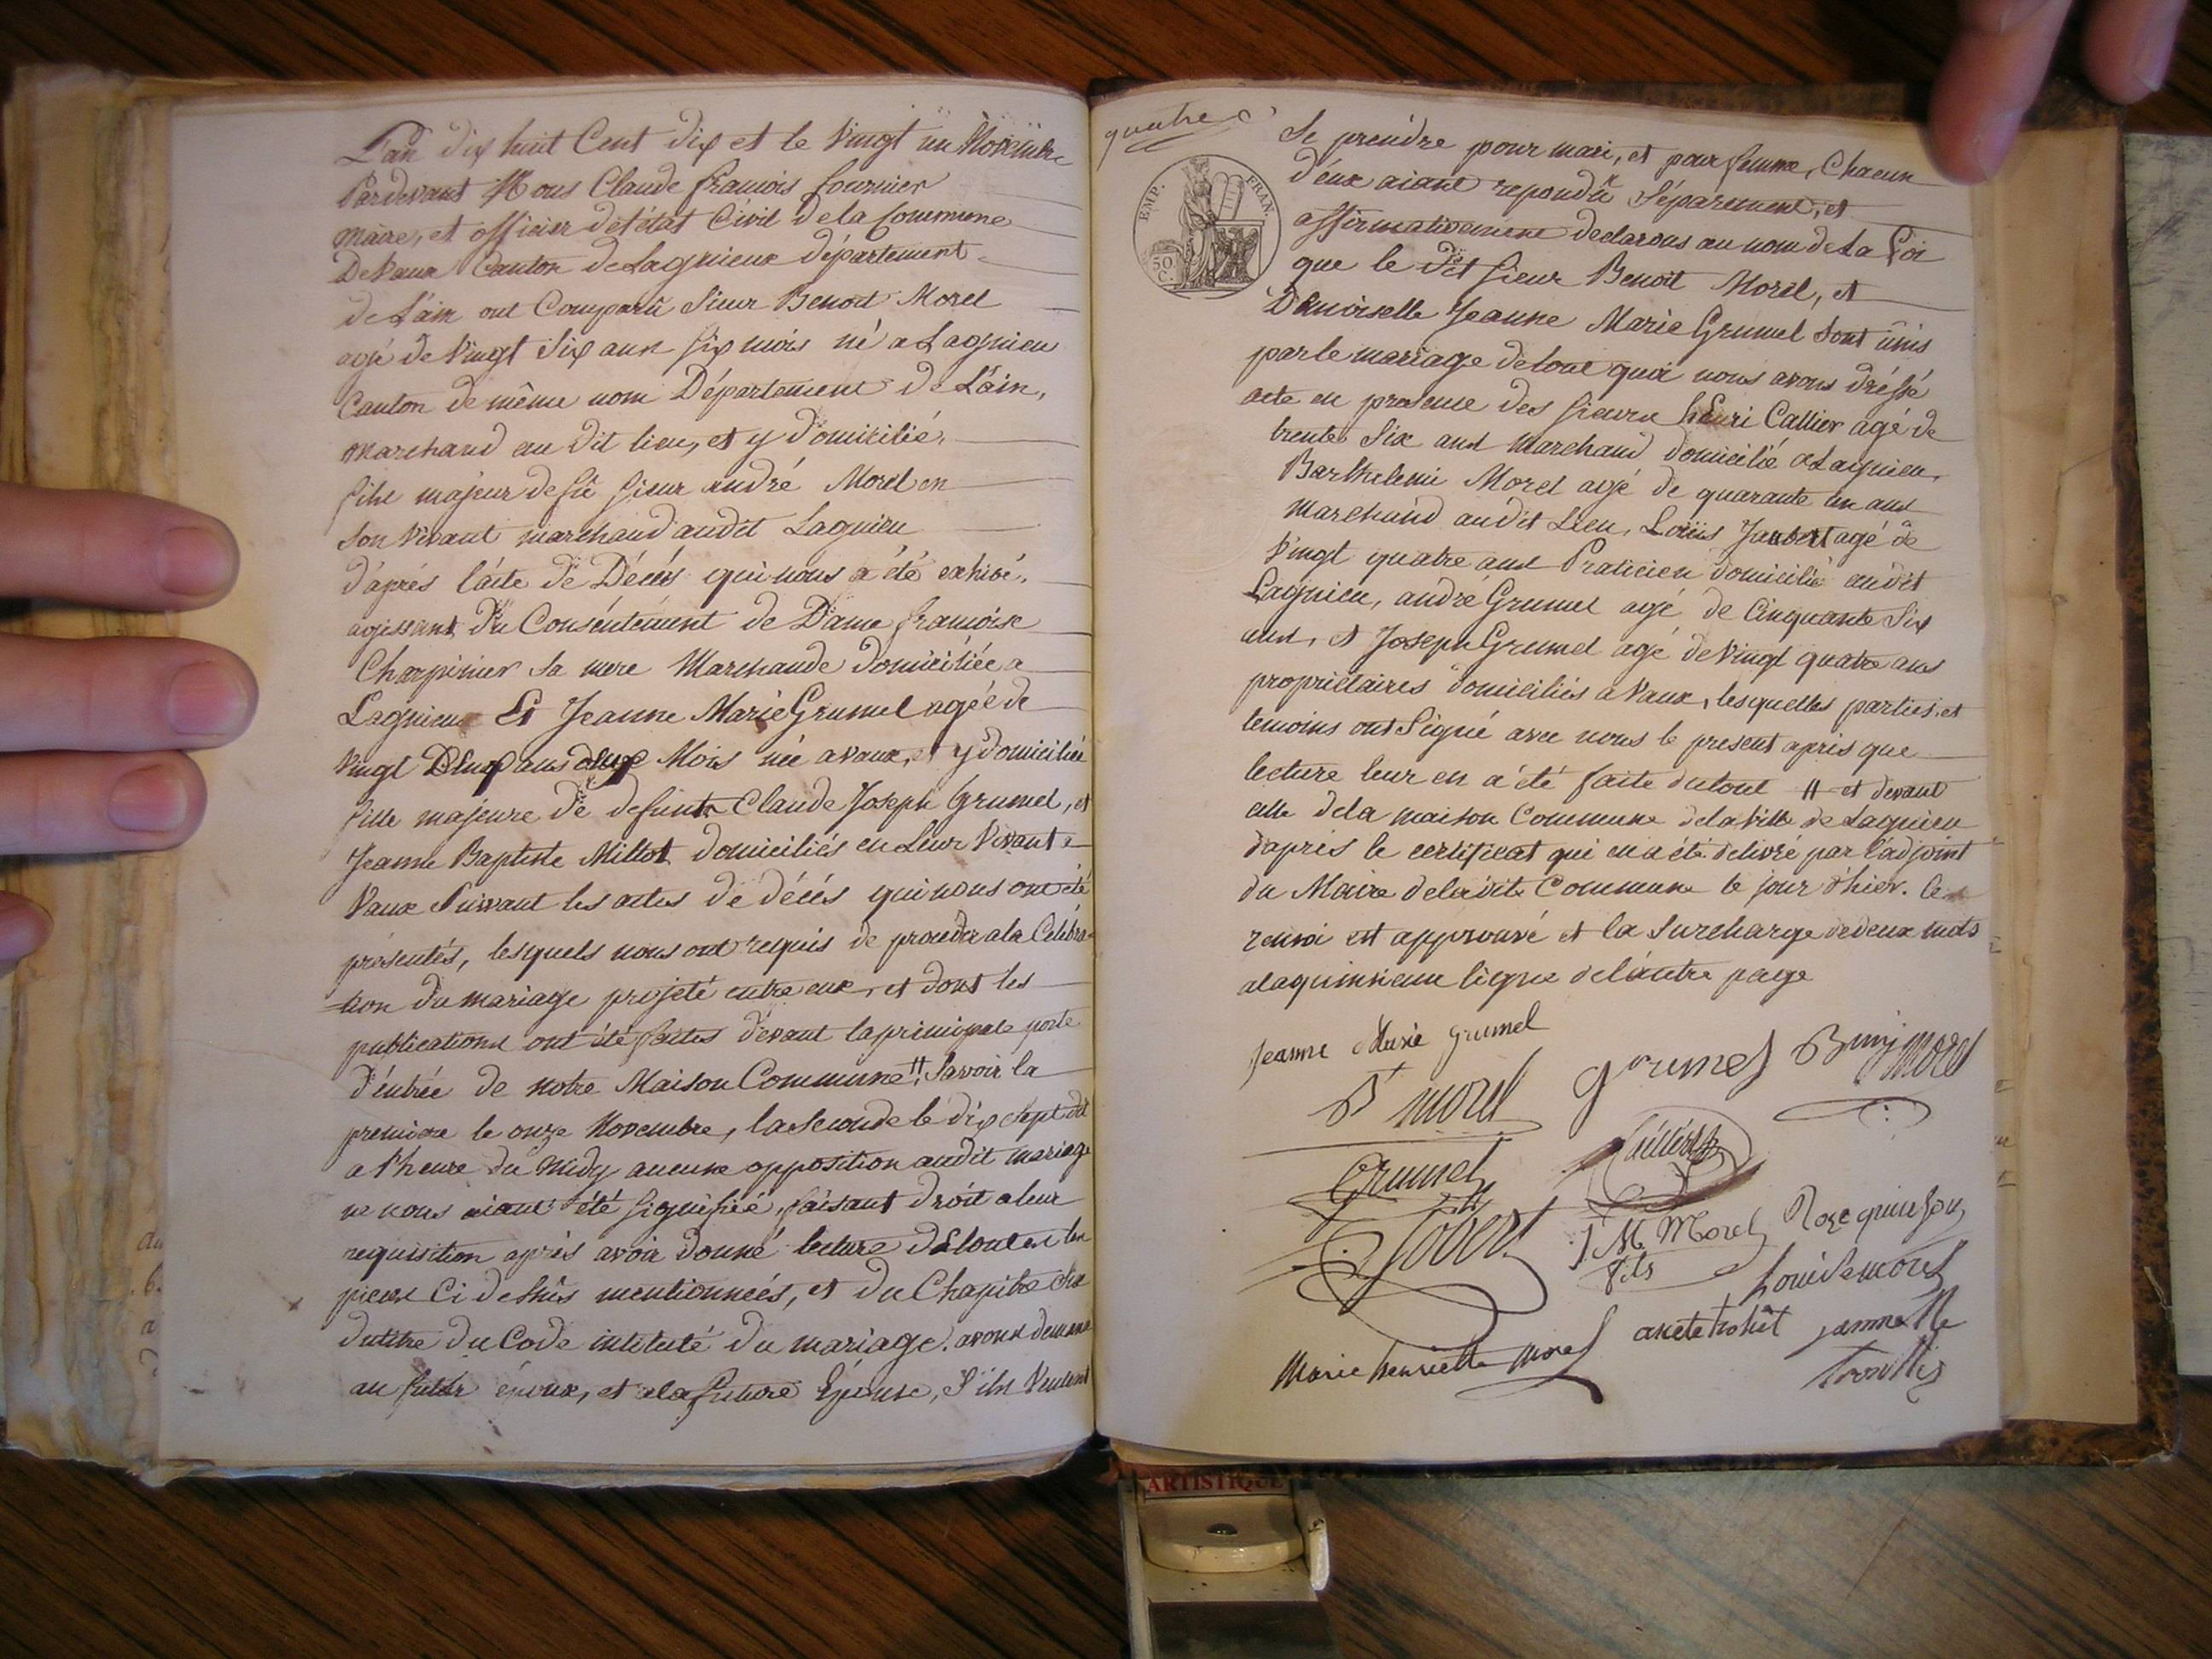 L'an dix huit Cent dix et le Vingt un Novembre
Pardevant Nous Claude francois fournier
Maire, et officier detétat Civil dela Commune
DeVaux Canton deLagnieux département
de L'ain ont Comparû Sieur Benoit Morel
agé de Vingt Six ans six mois né a Lagnieu
Canton de même nom Département de L'ain,
Marchand au Dit lieu, et y domicilié,
fils majeur de fû sieur andré Morel en
Son Vivant marchand audit Lagnieu
d'aprés l'acte de Décés qui nous a été exhibé,
agissant du Conséntement de Dame francoise
Charpinier Sa mere Marchande domiciliée a
Lagnieux Et Jeanne Marie Grumel agée de
Vingt Deux ans deux Mois née a vaux, et y domiciliée
fille majeure de defunts Claude Joseph Grumel, et
Jeanne Baptiste Millot domiciliés en Leur Vivant a
Vaux Suivant les actes de décés qui nous ont été
présentés, lesquels nous ont requis de proceder a la Celebra-
tion du mariage projeté entre eux, et dont les
publications ont été faites dévant la principale porte
d'éntrée de notre Maison Commune # Savoir la
premiere le onze Novembre, la Seconde le dix Sept dit
a l'heure du Midy aucune opposition audit mariage
ne nous aiant été signifiée, faisant droit a leur
requisition aprés avoir donné lecture de toutes les
pieces Ci dessûs mentionneés, et du Chapitre Six
du titre du Code intitulé du mariage. avons demandé
au futur époux, et a la future Epouse, S'ils Veulent
quatre
Se prendre pour mari, et pour femme, Chacun
d'eux aiant repondû Séparement, et
affirmativement declarons au nom de La Loi
EMP. FRAN.
50 C.
que le dit Sieur Benoit Morel, et
Demoiselle Jeanne Marie Grumel Sont ûnis
par le mariage de tout quoi nous avons dréssé
acte en presence des sieurs henri Callier agé de
trente Six ans Marchand domicilié a Lagnieu,
Barthelemi Morel agé de quarante un ans
Marchand audit Lieu, Loüis Jaubert agé de
Vingt quatre ans Praticien domicilié audit
Lagnieu, andré Grumel agé de Cinquante Six
ans, et Joseph Grumel agé de Vingt quatre ans
propriétaires domiciliés a Vaux, lesquelles parties, et
temoins ont Signé avec nous le present aprés que
lecture leur en a été faite du tout # et devant
celle dela maison Commune dela Ville de Lagnieu
d'aprés le certificat qui en a été delivré par l'adjoint
du Maire deladite Commune le jour d'hier. le
renvoi est approuvé et la Surcharge de deux mots
alaquinzieme ligne delautre page
Jeanne Marie Grumel
Grumel
Morel
Bt morel
Grumel
Callier
Jobert
J M Morel fils
Louise morel
Marie henriette Morel